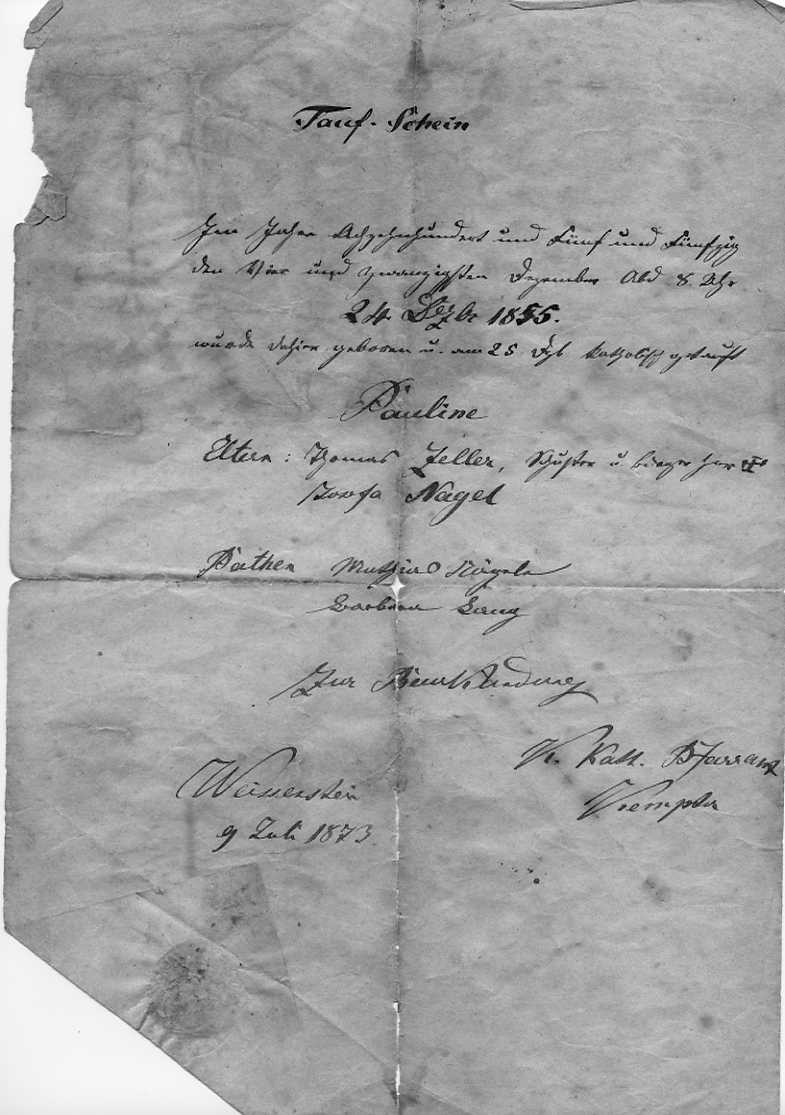 Tauf-Schein
Im Jahre Achzehnhundert und Fünf und Fünfzig
den Vier und zwanzigsten Dezember Abd 8 Uhr
24 Dezbr 1855.
wurde dahier geboren u. am 25 katholisch getauft
Pauline
Eltern: Thomas Zeller, Schuster u bürger hier
Josefa Nagel
Pathen Mathias Nägele
Barbara Lang
Zur Beurkundung
K. Kath. Pfarramt
Weissenstein
9 Juli 1873